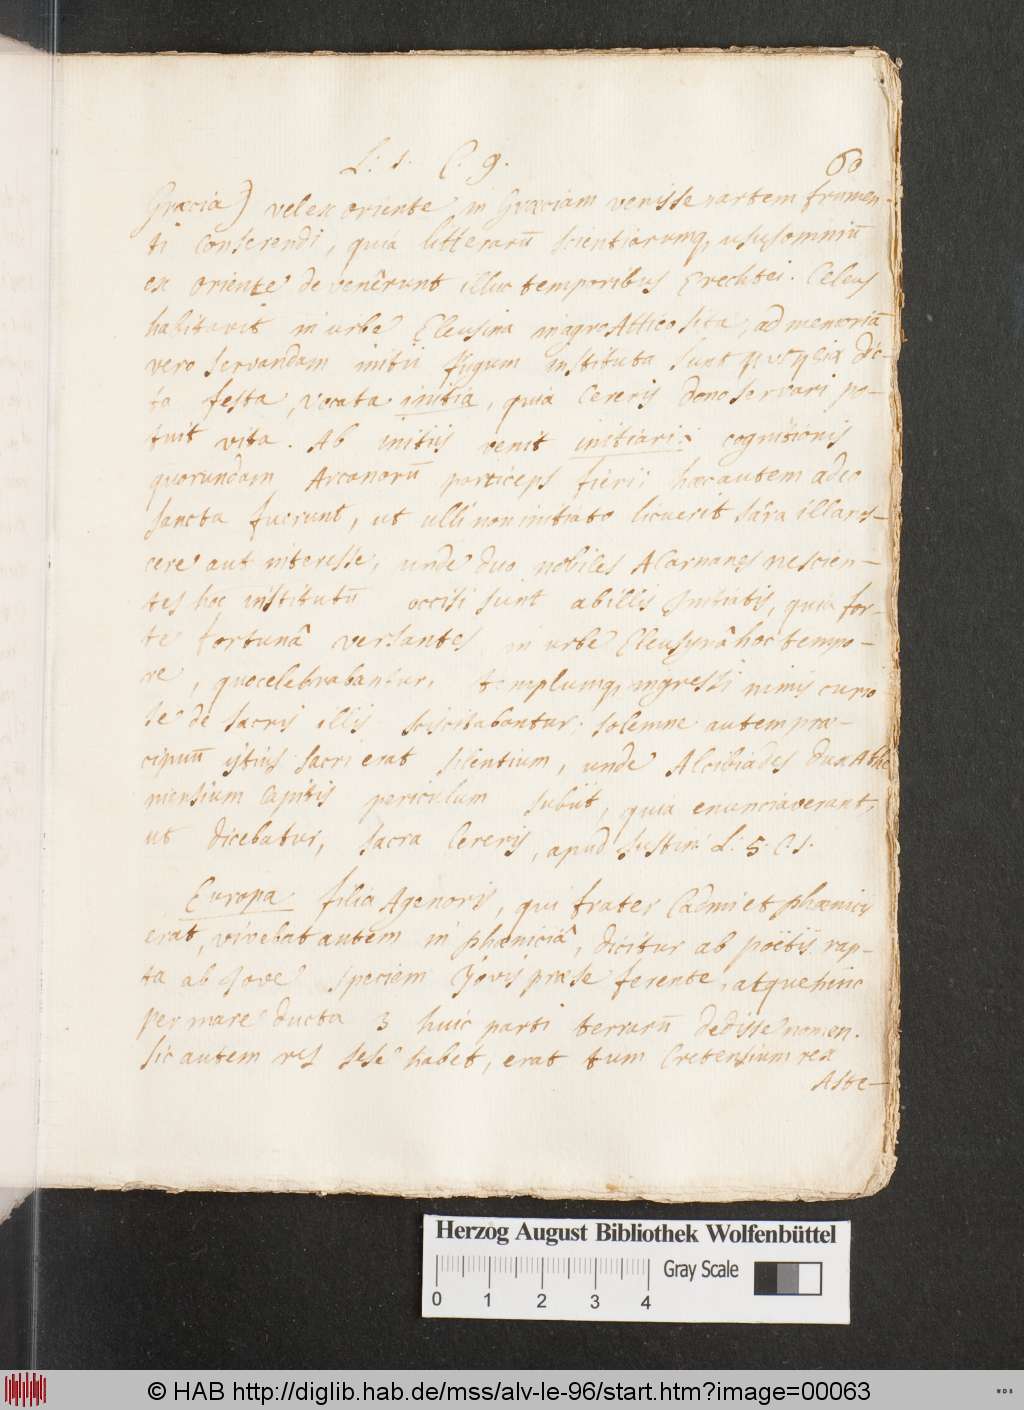 L: 1. C. 9. 60
Græcia) vel ex oriente in Græciam venisse artem frumen-
ti conserendi, quia litterarũ scientiarumq, usus omniũ
ex oriente devenêrunt illuc temporibus Erechtei. Celeus
habitavit in urbe Eleusina in agro Attico sita, ad memoriã
vero servandam initii frugum instituta sunt μυςηρια dic-
ta festa, vocata initia, quia Cereris dono servari po-
tuit vita. Ab initiis venit initiari: cognitionis
quorundam Arcanorũ particeps fieri: hæc autem adeo
sancta fuerunt, ut ulli non initiato licuerit sacra illa nos-
cere aut interesse, unde duo nobiles Acarnanes nescien-
tes hoc institutũ occisi sunt ab illis Initiatis, quia for-
te fortunâ versantes in urbe Eleusynâ hoc tempo-
re, quo celebrabantur, templumq, ingressi nimis curio
se de sacris illis sciscitabantur; solemne autem præ-
cipuũ istius sacri erat silentium, unde Alcibiades dux Athe
niensium Capitis periculum subiit, quia enunciaverant,
ut dicebatur, sacra Cereris, apud Justin: L: 5. C. 1.
Europa filia Agenoris, qui frater Cadmi et phœnicis
erat, vivebat autem in phœniciâ, dicitur ab poëtis rap-
ta ab Jove speciem Jovis præ se ferente, atque hinc
per mare ducta 3 huic parti terrarũ dedisse nomen.
sic autem res sese habet, erat tum Cretensium rex
Aste-
Herzog August Bibliothek Wolfenbüttel
Gray Scale
0 1 2 3 4
© HAB http://diglib.hab.de/mss/alv-le-96/start.htm?image=00063